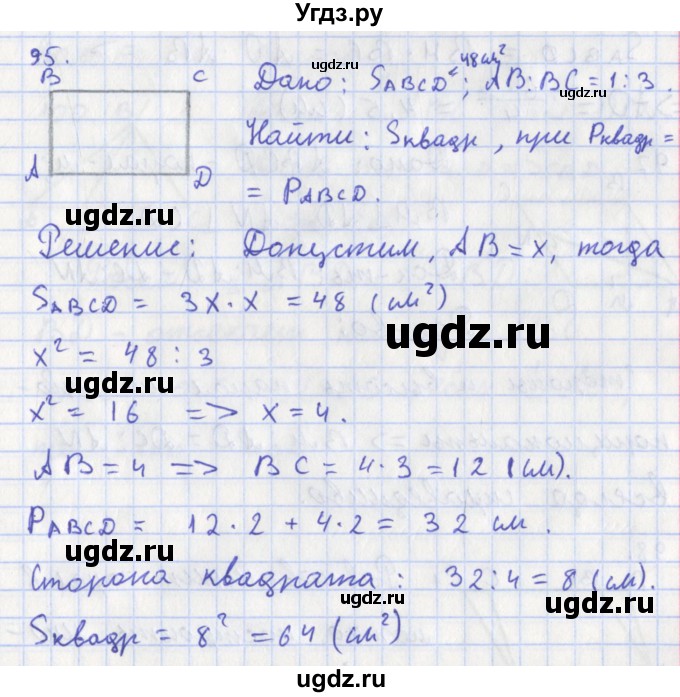 Угдз.ру
95.
B C
A D
Дано: SABCD = 48 см²; AB:BC = 1:3.
ugdz.ru
Найти: Sквадр, при Pквадр =
= PABCD.
ugdz.ru
ugdz.ru
Решение: Допустим, AB = x, тогда
SABCD = 3x · x = 48 (см²)
ugdz.ru
x² = 48 : 3
x² = 16 => x = 4.
ugdz.ru
AB = 4 => BC = 4 · 3 = 12 (см).
PABCD = 12 · 2 + 4 · 2 = 32 см.
ugdz.ru
Сторона квадрата: 32 : 4 = 8 (см).
ugdz.ru
ugdz.ru
Sквадр = 8² = 64 (см²)
ugdz.ru